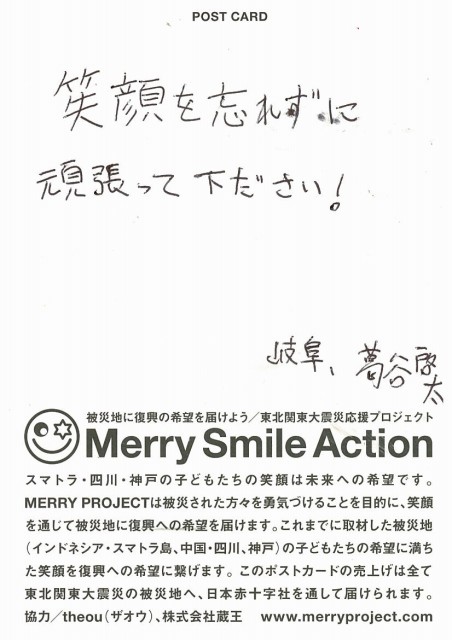 POST CARD
笑顔を忘れずに
頑張って下ださい!
岐阜、葛谷啓太
被災地に復興の希望を届けよう/東北関東大震災応援プロジェクト
Merry Smile Action
スマトラ・四川・神戸の子どもたちの笑顔は未来への希望です。
MERRY PROJECTは被災された方々を勇気づけることを目的に、笑顔
を通じて被災地に復興への希望を届けます。これまでに取材した被災地
(インドネシア・スマトラ島、中国・四川、神戸)の子どもたちの希望に満ち
た笑顔を復興への希望に繋げます。このポストカードの売上げは全て
東北関東大震災の被災地へ、日本赤十字社を通して届けられます。
協力/theou(ザオウ)、株式会社蔵王 www.merryproject.com